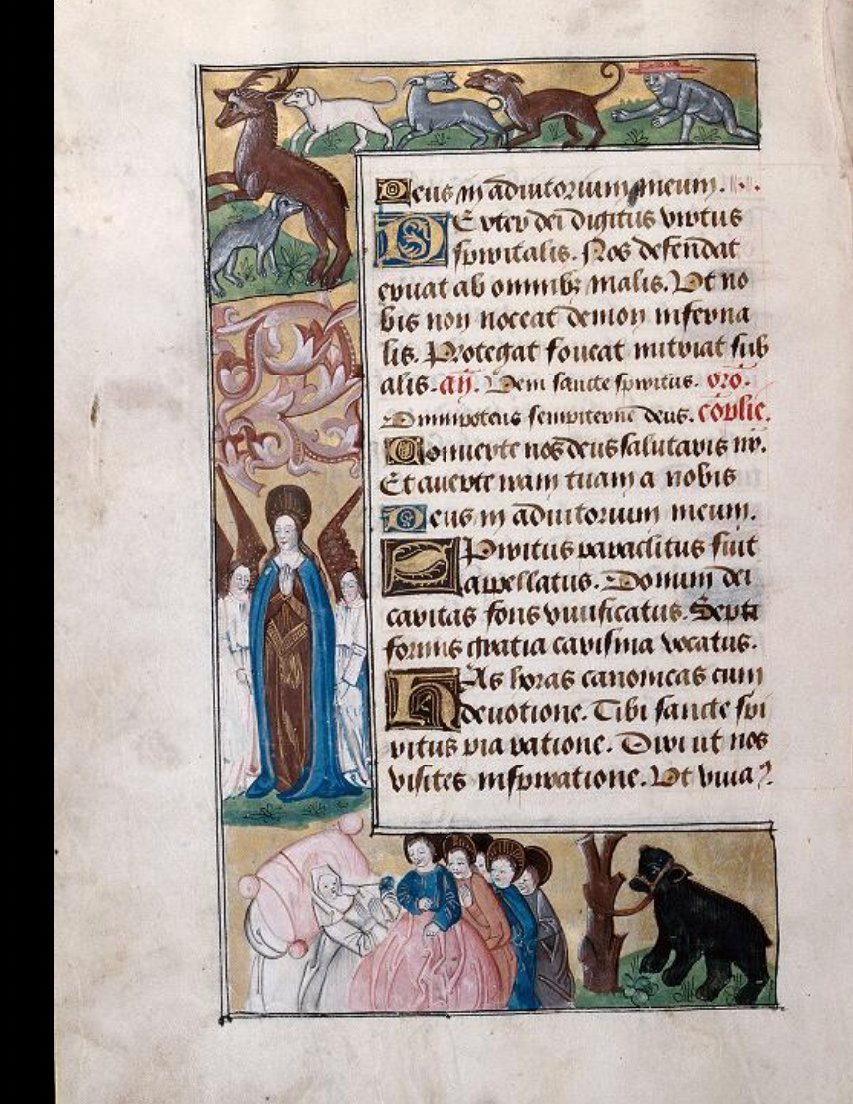 Deus in adiutorium meum.
DExter dei digitus virtus
spiritalis. Nos defendat
eruat ab omnibꝫ malis. Ut no
bis non noceat demon inferna
lis. Protegat foveat nutriat sub
alis. añ. Veni sancte spiritus. oro.
Omnipotens sempiterne deus. cõplie.
Converte nos deus salutaris nr̄.
Et averte iram tuam a nobis
Deus in adiutorium meum.
SPiritus paraclitus fuit
appellatus. Donum dei
caritas fons vivificatus. Septi
formis gratia carisma vocatus.
HAs horas canonicas cum
devotione. Tibi sancte spi
ritus pia ratione. Dixi ut nos
visites inspiratione. Ut viva